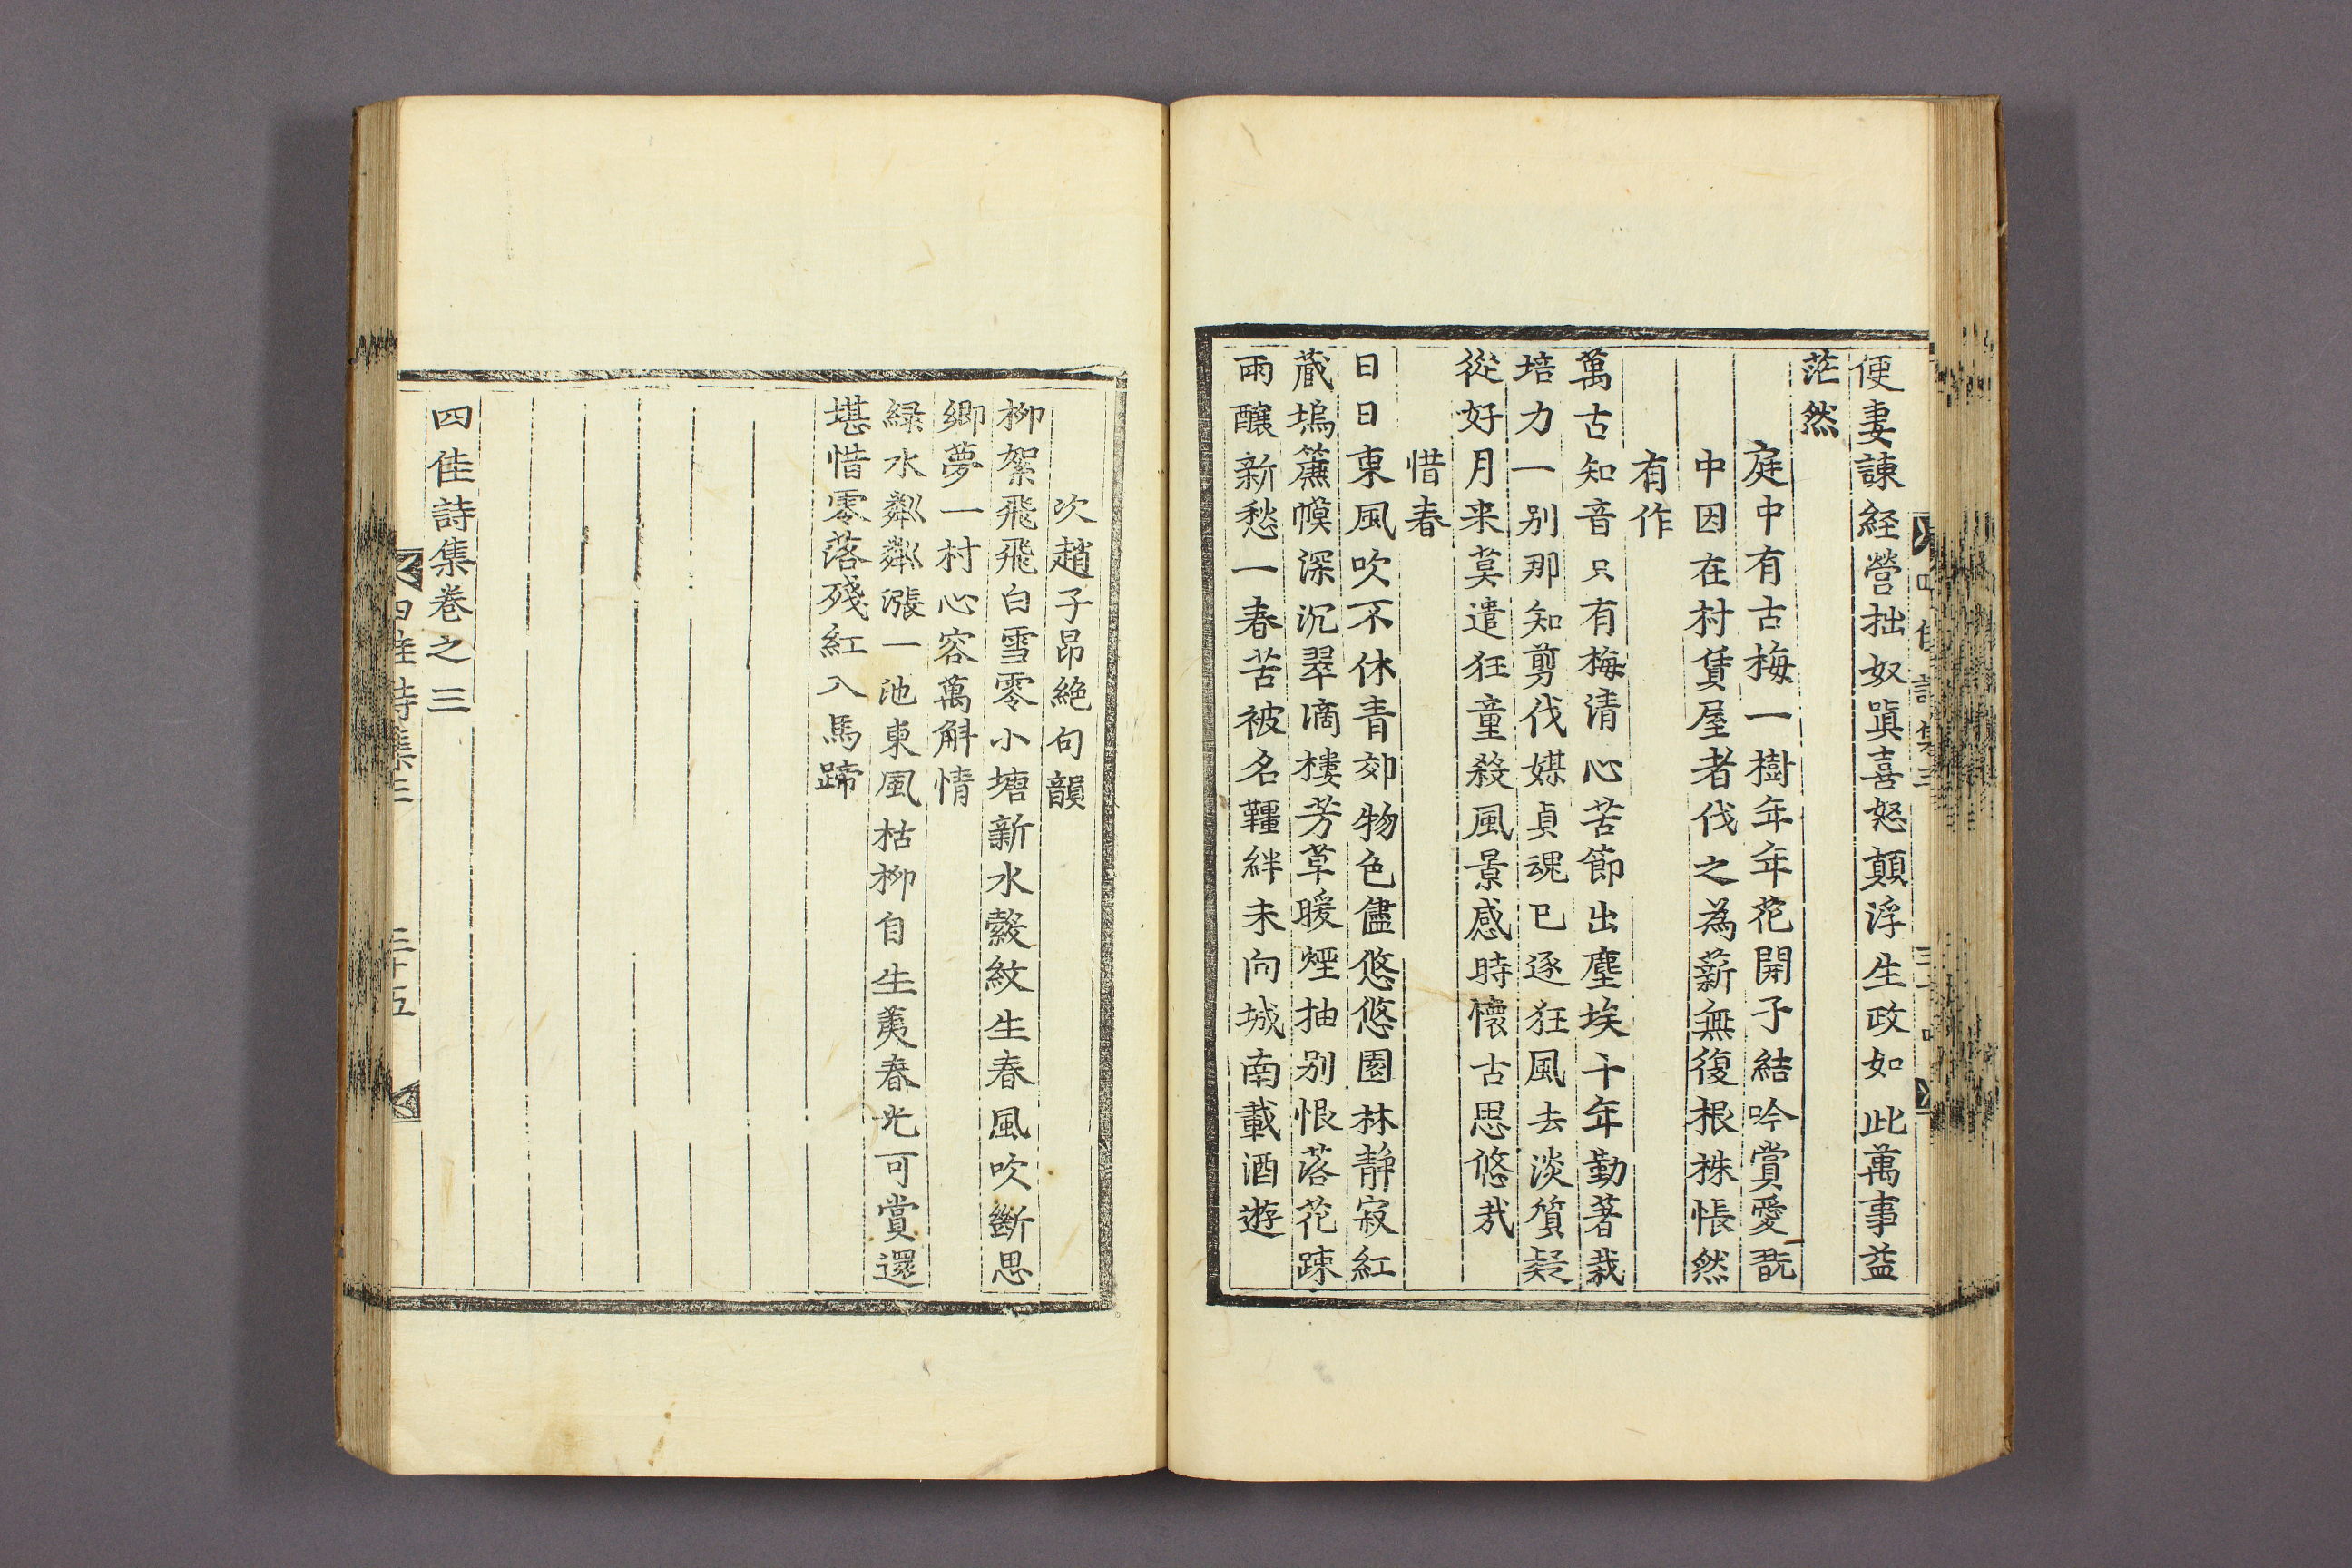 便妻諫経營拙奴嗔喜怒顛浮生政如此萬事益
茫然
庭中有古梅一樹年年花開子結吟賞愛翫
中因在村賃屋者伐之為薪無復根株悵然
有作
萬古知音只有梅清心苦節出塵埃十年勤著栽
培力一别那知剪伐媒貞魂已逐狂風去淡質疑
從好月来莫遣狂童殺風景感時懷古思悠哉
惜春
日日東風吹不休青郊物色儘悠悠園林静寂紅
蔵塢簾幙深沉翠滴樓芳草暖煙抽别恨落花踈
雨釀新愁一春苦被名韁絆未向城南載酒遊
次趙子昂絶句韻
柳絮飛飛白雪零小塘新水縠紋生春風吹斷思
郷夢一村心容萬斛情
緑水粼粼漲一池東風枯柳自生荑春光可賞還
堪惜零落殘紅入馬蹄
四佳詩集卷之三
四佳詩集三
三十五